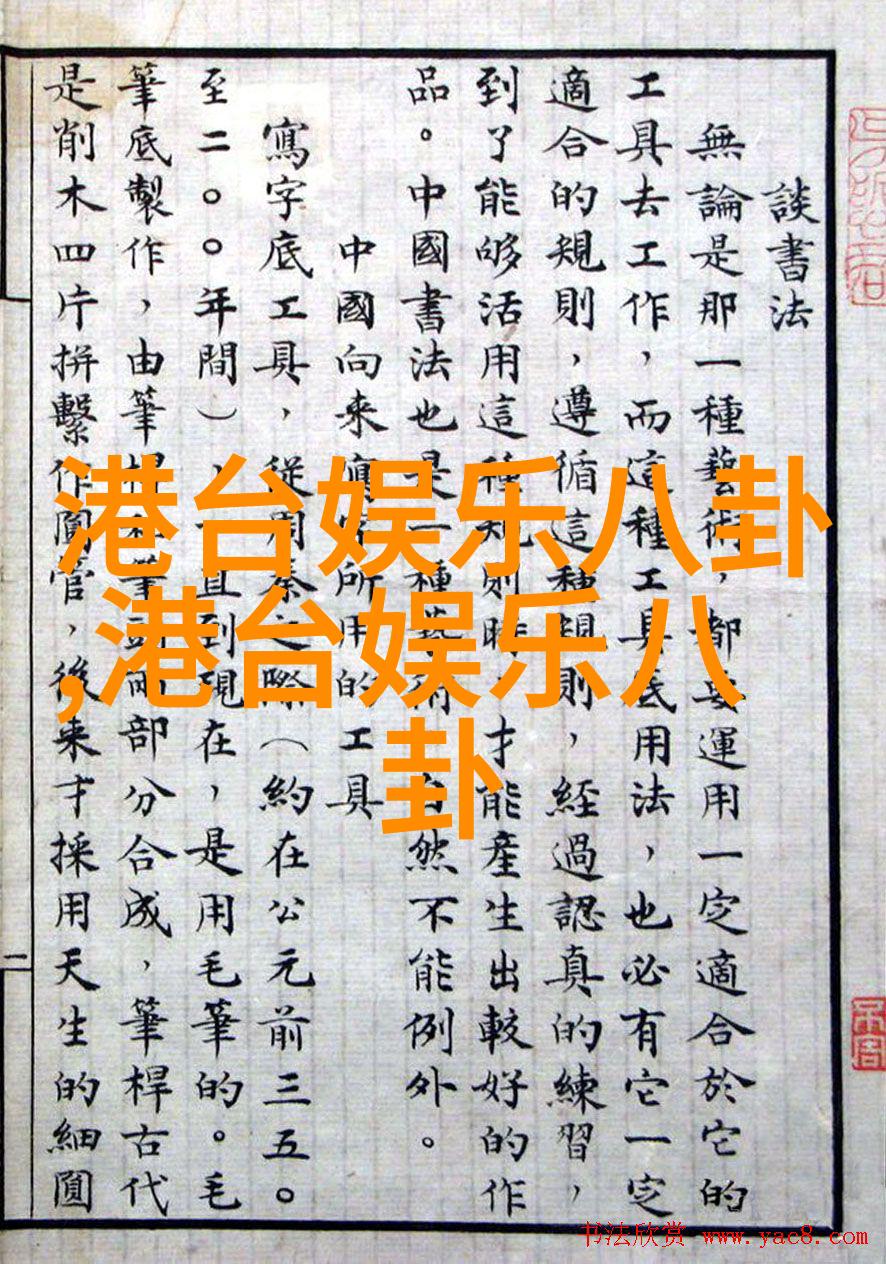 談書法
無論是那一種藝術，都要運用一定適合於它的
工具去工作，而這種工具底用法，也必有它一定
適合的規則，遵循這種規則，經過認真的練習，
到了能够活用這種規則時，才能產生出較好的作
品。中國書法也是一種藝術，自然不能例外。
中國向來寫字所用的工具
寫字底工具，從周秦之際（約在公元前三五〇
至二〇〇年間），一直到現在，是用毛筆的。毛
筆底製作，由筆桿和筆頭兩部分合成，筆桿古代
是削木四片拼繫作圓管，後來才採用天生的細圓
二
港台娱乐八卦
,港台娱乐八
卦
书法欣赏 www.yac8.com